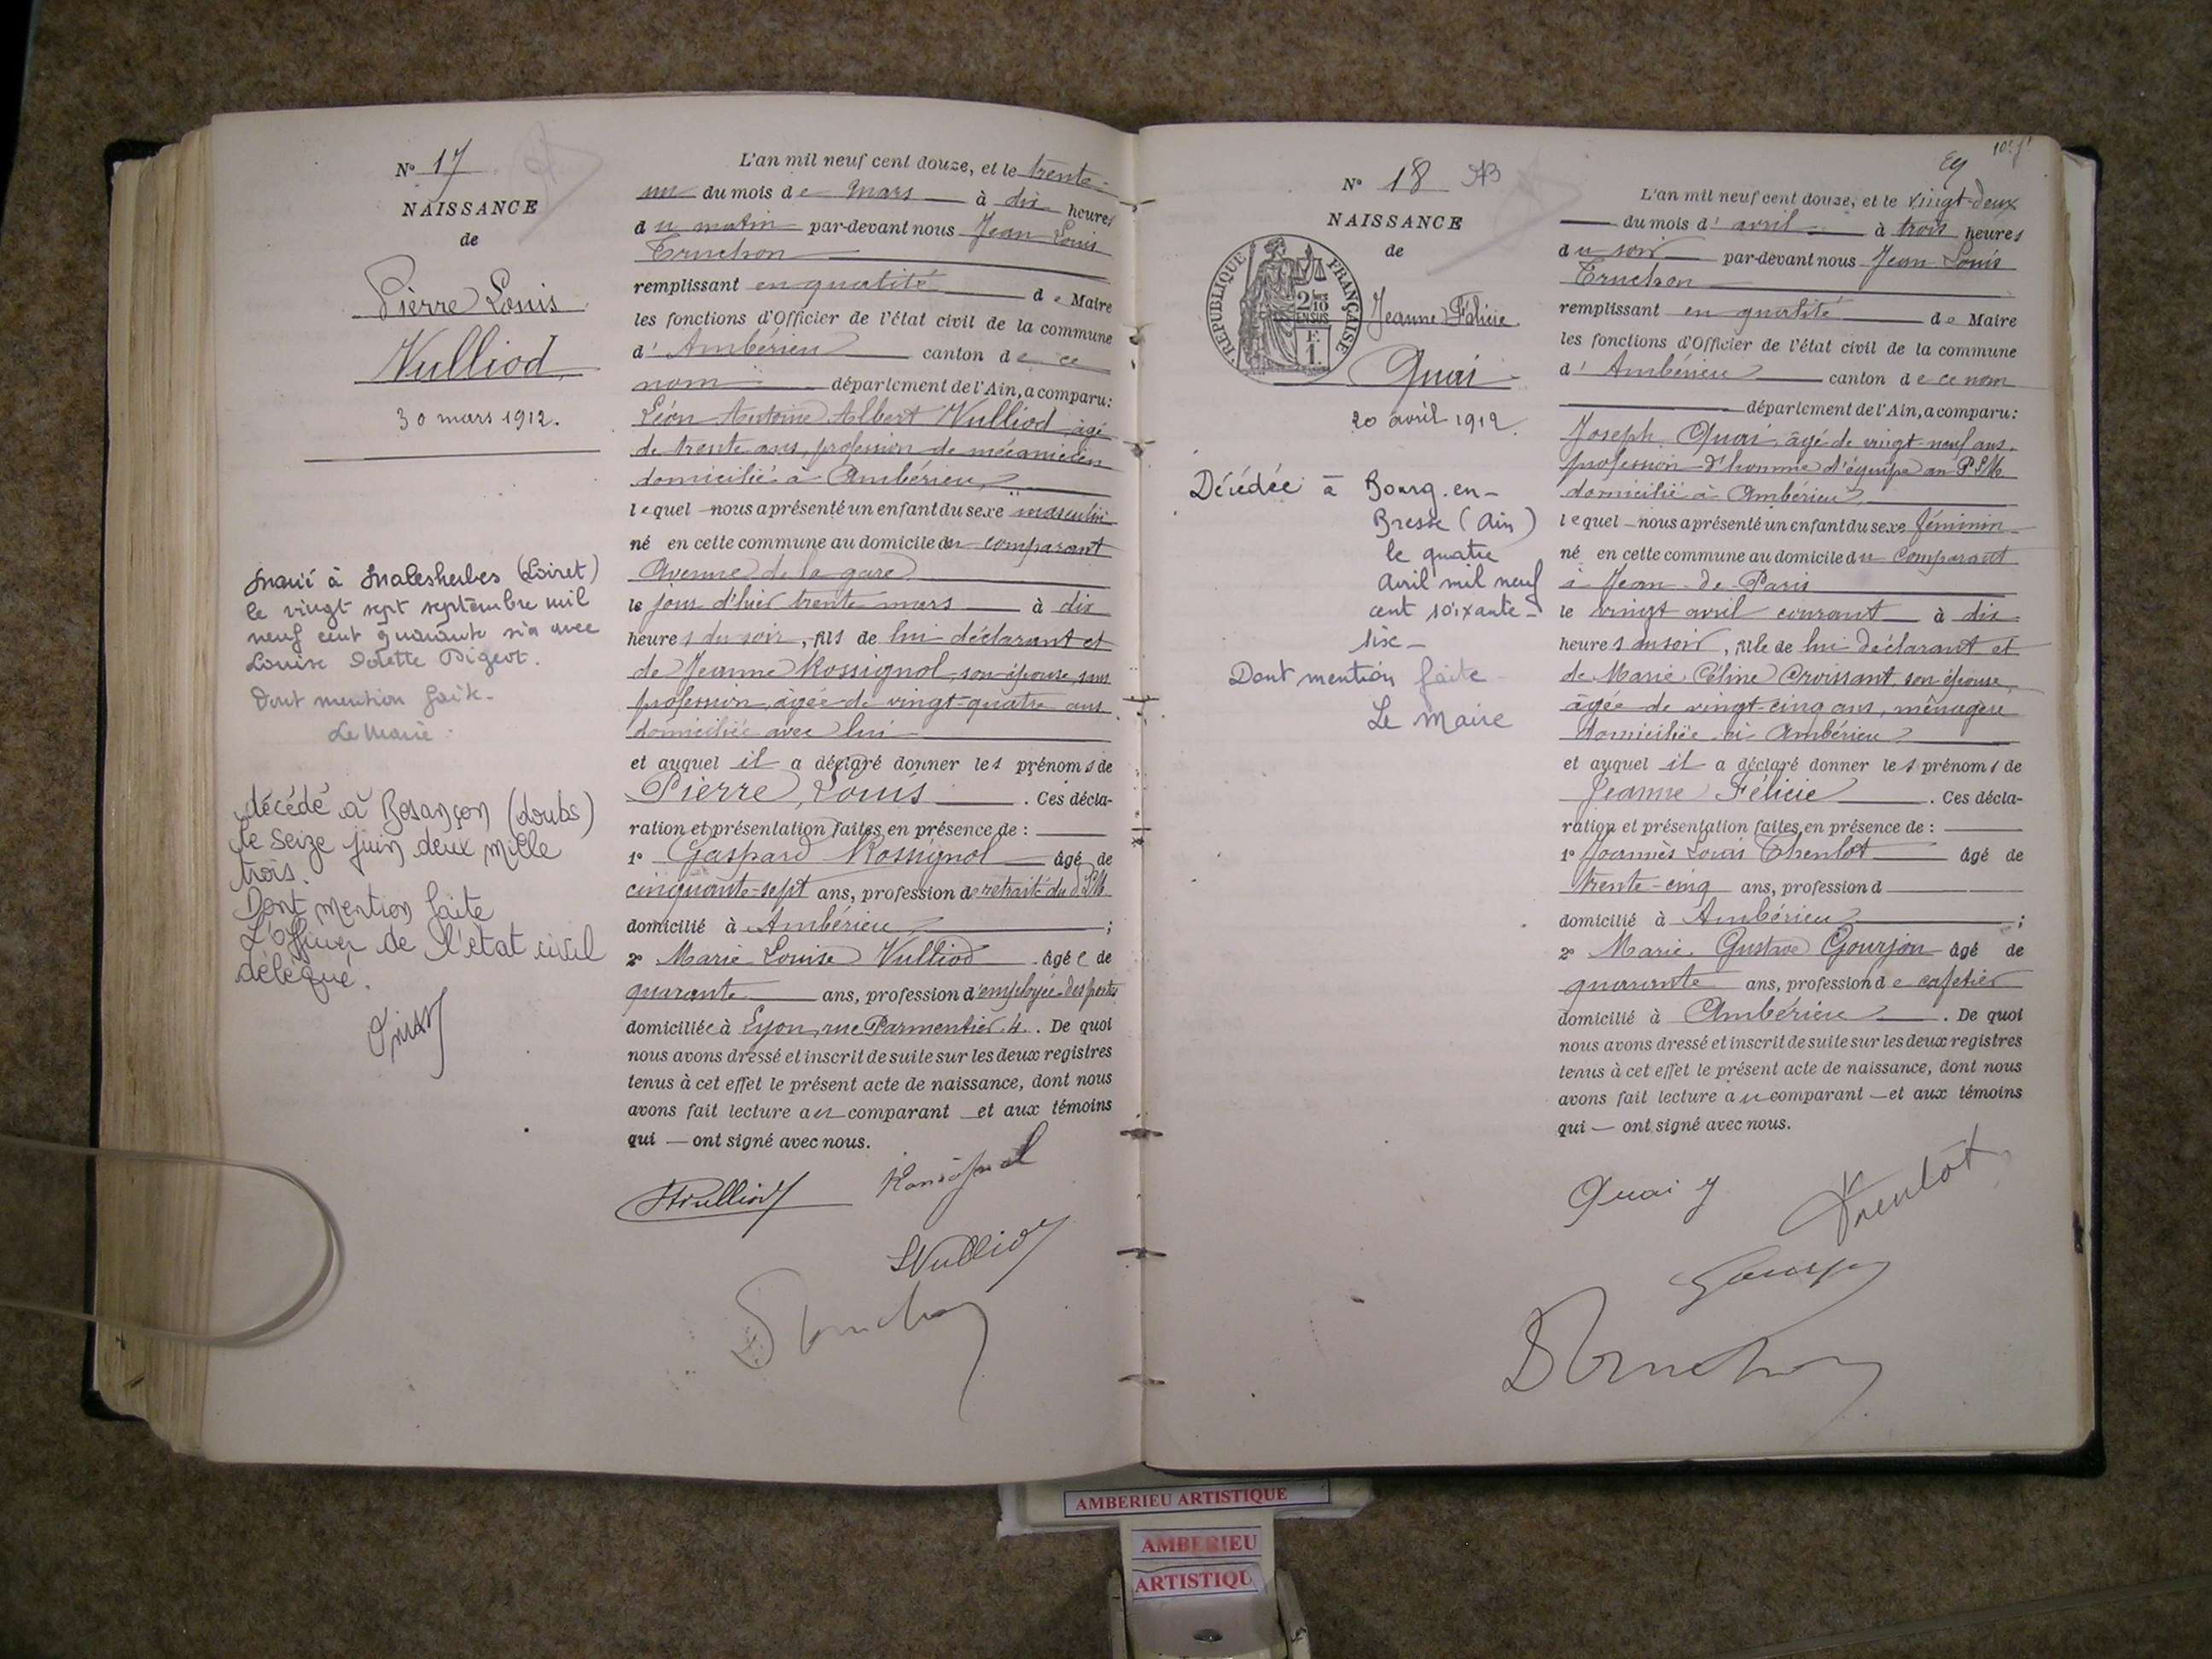 N° 17
NAISSANCE
de
Pierre Louis
Vulliod
30 mars 1912.
Marié à Malesherbes (Loiret)
le vingt sept septembre mil
neuf cent quarante six avec
Louise Odette Pigeot.
Dont mention faite.
Le Maire
décédé à Besançon (doubs)
le seize juin deux mille
trois.
Dont mention faite
L'officier de l'état civil
délégué.
L'an mil neuf cent douze, et le trente-
un du mois de Mars à dix heures
du matin par-devant nous Jean Louis
Truchon
remplissant en qualité de Maire
les fonctions d'Officier de l'état civil de la commune
d'Ambérieu canton de ce
nom département de l'Ain, a comparu:
Léon Antoine Albert Vulliod âgé
de trente ans, profession de mécanicien
domicilié à Ambérieu,
lequel nous a présenté un enfant du sexe masculin
né en cette commune au domicile du comparant
Avenue de la gare
le jour d'hier trente mars à dix
heures du soir, fils de lui déclarant et
de Jeanne Rossignol, son épouse, sans
profession, âgée de vingt-quatre ans
domiciliée avec lui
et auquel il a déclaré donner les prénoms de
Pierre, Louis. Ces décla-
ration et présentation faites en présence de :
1° Gaspard Rossignol âgé de
cinquante-sept ans, profession de retraité du PLM
domicilié à Ambérieu ;
2° Marie Louise Vulliod âgée de
quarante ans, profession d'employée des postes
domiciliée à Lyon, rue Parmentier 4. De quoi
nous avons dressé et inscrit de suite sur les deux registres
tenus à cet effet le présent acte de naissance, dont nous
avons fait lecture au comparant et aux témoins
qui — ont signé avec nous.
AVulliod Rossignol
LVulliod
Truchon
10e f
N° 18
NAISSANCE
de
RÉPUBLIQUE FRANÇAISE
2/10
EN SUS
F.
1.
Jeanne Félicie
Quai
20 avril 1912.
Décédée à Bourg-en-
Bresse (Ain)
le quatre
avril mil neuf
cent soixante-
six-
Dont mention faite
Le Maire
L'an mil neuf cent douze, et le vingt-deux
du mois d'avril à trois heures
du soir par-devant nous Jean Louis
Truchon
remplissant en qualité de Maire
les fonctions d'Officier de l'état civil de la commune
d'Ambérieu canton de ce nom
département de l'Ain, a comparu:
Joseph Quai âgé de vingt-neuf ans,
profession d'homme d'équipe au PLM
domicilié à Ambérieu,
lequel nous a présenté un enfant du sexe féminin
né en cette commune au domicile du Comparant
à Jean-de-Paris
le vingt avril courant à dix
heures du soir, fille de lui déclarant et
de Marie Céline Croissant, son épouse,
âgée de vingt-cinq ans, ménagère
domiciliée à Ambérieu
et auquel il a déclaré donner les prénoms de
Jeanne Félicie. Ces décla-
ration et présentation faites en présence de :
1° Joannès Louis Thenlot âgé de
trente-cinq ans, profession d
domicilié à Ambérieu ;
2° Marie Gustave Gourjon âgé de
quarante ans, profession de cafetier
domicilié à Ambérieu. De quoi
nous avons dressé et inscrit de suite sur les deux registres
tenus à cet effet le présent acte de naissance, dont nous
avons fait lecture au comparant — et aux témoins
qui — ont signé avec nous.
Quai J
Thenlot
Truchon
AMBERIEU ARTISTIQUE
AMBERIEU
ARTISTIQU